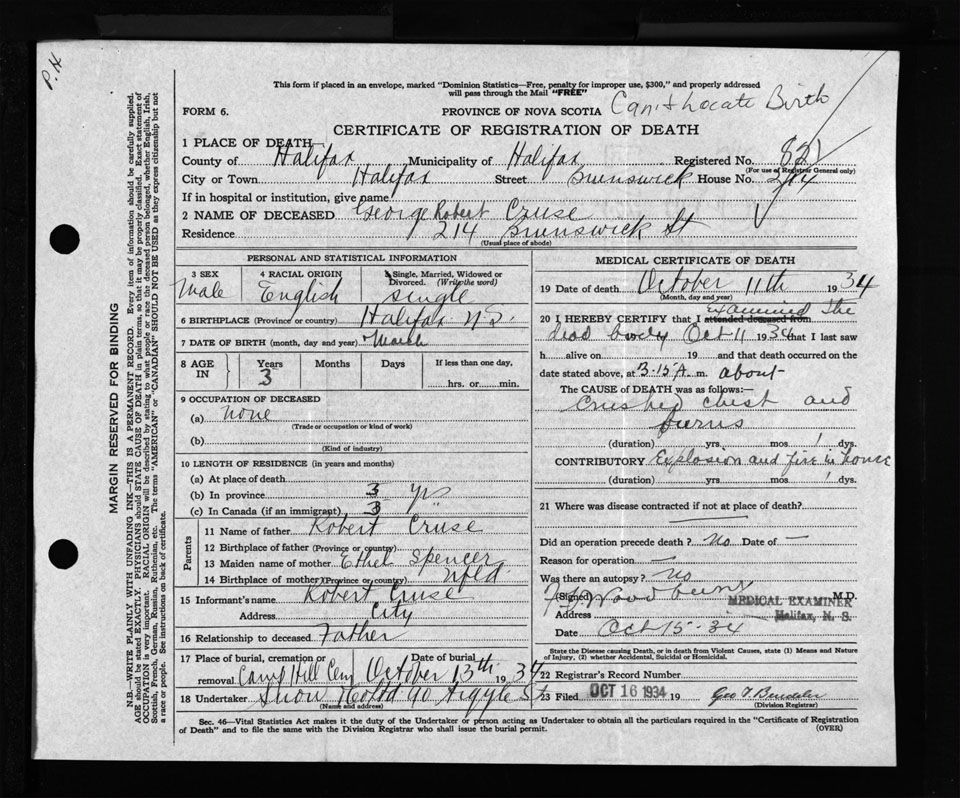 P.H
This form if placed in an envelope, marked "Dominion Statistics—Free, penalty for improper use, $300," and properly addressed
will pass through the Mail "FREE"
FORM 6.
PROVINCE OF NOVA SCOTIA Can't Locate Birth
CERTIFICATE OF REGISTRATION OF DEATH
1 PLACE OF DEATH—
County of Halifax Municipality of Halifax Registered No. 821
(For use of Registrar General only)
City or Town Halifax Street Brunswick House No. 214
If in hospital or institution, give name
2 NAME OF DECEASED George Robert Cruse
Residence 214 Brunswick St
(Usual place of abode)
PERSONAL AND STATISTICAL INFORMATION
3 SEX Male
4 RACIAL ORIGIN English
5 Single, Married, Widowed or Divorced. (Write the word) single
6 BIRTHPLACE (Province or country) Halifax N S.
7 DATE OF BIRTH (month, day and year) March
8 AGE IN Years 3 Months Days If less than one day, hrs. or min.
9 OCCUPATION OF DECEASED
(a) none
(Trade or occupation or kind of work)
(b)
(Kind of industry)
10 LENGTH OF RESIDENCE (in years and months)
(a) At place of death
(b) In province 3 yrs
(c) In Canada (if an immigrant) 3 "
Parents
11 Name of father Robert Cruse
12 Birthplace of father (Province or country)
13 Maiden name of mother Ethel Spencer
14 Birthplace of mother (Province or country) Nfld
15 Informant's name Robert Cruse
Address City
16 Relationship to deceased Father
17 Place of burial, cremation or removal Camp Hill Cem Date of burial October 13th 1934
18 Undertaker Snow & Co Ltd 90 Argyle St
(Name and address)
MEDICAL CERTIFICATE OF DEATH
19 Date of death October 11th 1934
(Month, day and year)
20 I HEREBY CERTIFY that I attended deceased from examined the
dead body Oct 11 1934 that I last saw
h alive on 19 and that death occurred on the
date stated above, at 3.15 A. m. about
The CAUSE OF DEATH was as follows:—
Crushed chest and
burns
(duration) yrs. mos. 1 dys.
CONTRIBUTORY Explosion and fire in house
(duration) yrs. mos. 1 dys.
21 Where was disease contracted if not at place of death?
Did an operation precede death? No Date of —
Reason for operation —
Was there an autopsy? no
(Signed) Woodbury M.D.
MEDICAL EXAMINER
Address Halifax, N. S.
Date Oct 15 - 34
State the Disease causing Death, or in death from Violent Causes, state (1) Means and Nature of Injury, (2) whether Accidental, Suicidal or Homicidal.
22 Registrar's Record Number
23 Filed OCT 16 1934 19
(Division Registrar)
Sec. 46—Vital Statistics Act makes it the duty of the Undertaker or person acting as Undertaker to obtain all the particulars required in the "Certificate of Registration
of Death" and to file the same with the Division Registrar who shall issue the burial permit. (OVER)
MARGIN RESERVED FOR BINDING
N.B.—WRITE PLAINLY WITH UNFADING INK—THIS IS A PERMANENT RECORD. Every item of information should be carefully supplied.
AGE should be stated EXACTLY. PHYSICIANS should STATE CAUSE OF DEATH in plain terms, so that it may be properly classified. Exact statement of
OCCUPATION is very important. RACIAL ORIGIN will be described by stating to what people or race the deceased person belonged, whether English, Irish,
Scottish, French, German, Russian, Ruthenian, etc. The terms "AMERICAN" or "CANADIAN" SHOULD NOT BE USED as they express citizenship but not
a race or people. See instructions on back of certificate.